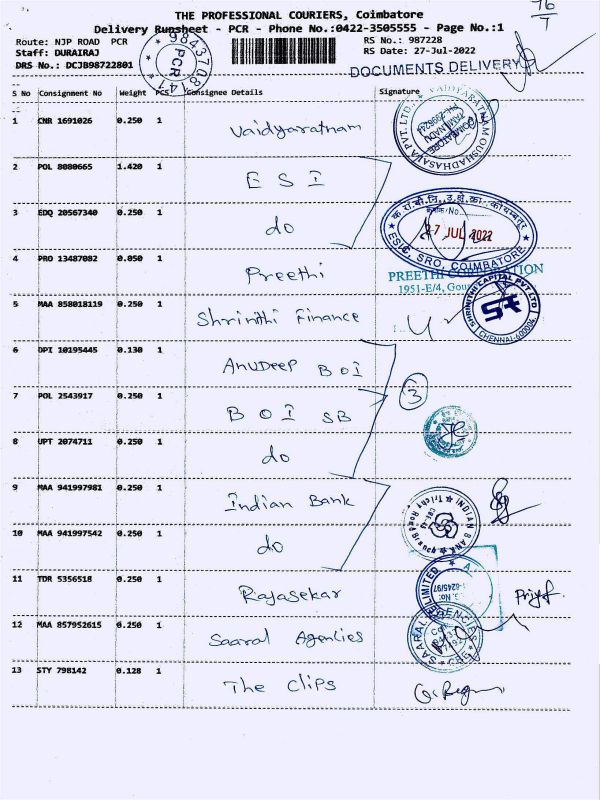 76
T
THE PROFESSIONAL COURIERS, Coimbatore
Delivery Runsheet - PCR - Phone No.:0422-3505555 - Page No.:1
Route: NJP ROAD PCR
RS No.: 987228
Staff: DURAIRAJ
RS Date: 27-Jul-2022
DRS No.: DCJB98722801
PCR
DOCUMENTS DELIVERY
S No Consignment No Weight PCS Consignee Details Signature
1 CNR 1691026 0.250 1 Vaidyaratnam
VAIDYARATNAM OUSHADHASALA PVT. LTD.
COIMBATORE
TAMILNADU
2 POL 8080665 1.420 1 E S I
3 EDQ 20567340 0.250 1 do
27 JUL 2022
ESIC, SRO, COIMBATORE
4 PRO 13487082 0.050 1 Preethi
PREETHI CORPORATION
1951-E/4,
5 MAA 858018119 0.250 1 Shrinithi Finance
SHRINITHI CAPITAL PVT LTD
CHENNAI-600004
6 DPI 10195445 0.130 1 Anudeep BOI
7 POL 2543917 0.250 1 BOI SB
3
8 UPT 2074711 0.250 1 do
9 MAA 941997981 0.250 1 Indian Bank
INDIAN BANK
Trichy Road Branch
10 MAA 941997542 0.250 1 do
11 TDR 5356518 0.250 1 Rajasekar
LIMITED
12 MAA 857952615 0.250 1 Saaral Agencies
SAARAL AGENCIES
CBE
13 STY 798142 0.128 1 The Clips